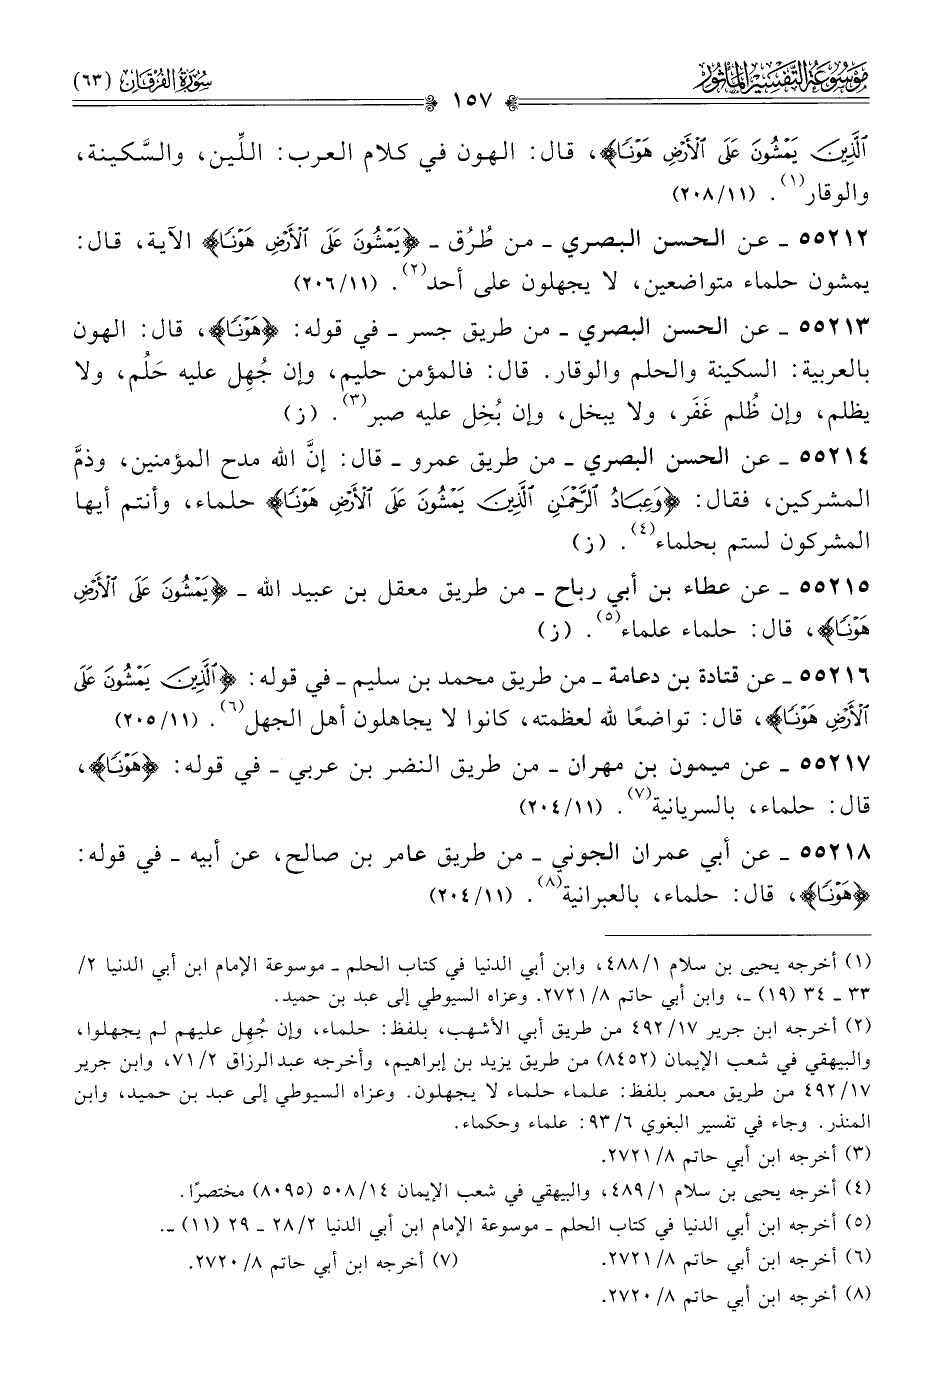 مَوْسُوعَة التَّفْسِيرِ المَأْثُور
سُورَةُ الفُرْقَانِ (٦٣)
١٥٧
ٱلَّذِينَ يَمْشُونَ عَلَى ٱلْأَرْضِ هَوْنًا﴾، قال: الهون في كلام العرب: اللِّين، والسَّكينة،
والوقار(١). (٢٠٨/١١)
٥٥٢١٢ ـ عن الحسن البصري ـ من طُرُق ـ ﴿يَمْشُونَ عَلَى ٱلْأَرْضِ هَوْنًا﴾ الآية، قال:
يمشون حلماء متواضعين، لا يجهلون على أحد(٢). (٢٠٦/١١)
٥٥٢١٣ ـ عن الحسن البصري ـ من طريق جسر ـ في قوله: ﴿هَوْنًا﴾، قال: الهون
بالعربية: السكينة والحلم والوقار. قال: فالمؤمن حليم، وإن جُهِل عليه حَلُم، ولا
يظلم، وإن ظُلم غَفَر، ولا يبخل، وإن بُخِل عليه صبر(٣). (ز)
٥٥٢١٤ ـ عن الحسن البصري ـ من طريق عمرو ـ قال: إنَّ الله مدح المؤمنين، وذمَّ
المشركين، فقال: ﴿وَعِبَادُ ٱلرَّحْمَٰنِ ٱلَّذِينَ يَمْشُونَ عَلَى ٱلْأَرْضِ هَوْنًا﴾ حلماء، وأنتم أيها
المشركون لستم بحلماء(٤). (ز)
٥٥٢١٥ ـ عن عطاء بن أبي رباح ـ من طريق معقل بن عبيد الله ـ ﴿يَمْشُونَ عَلَى ٱلْأَرْضِ
هَوْنًا﴾، قال: حلماء علماء(٥). (ز)
٥٥٢١٦ ـ عن قتادة بن دعامة ـ من طريق محمد بن سليم ـ في قوله: ﴿ٱلَّذِينَ يَمْشُونَ عَلَى
ٱلْأَرْضِ هَوْنًا﴾، قال: تواضعًا لله لعظمته، كانوا لا يجاهلون أهل الجهل(٦). (٢٠٥/١١)
٥٥٢١٧ ـ عن ميمون بن مهران ـ من طريق النضر بن عربي ـ في قوله: ﴿هَوْنًا﴾،
قال: حلماء، بالسريانية(٧). (٢٠٤/١١)
٥٥٢١٨ ـ عن أبي عمران الجوني ـ من طريق عامر بن صالح، عن أبيه ـ في قوله:
﴿هَوْنًا﴾، قال: حلماء، بالعبرانية(٨). (٢٠٤/١١)
(١) أخرجه يحيى بن سلام ٤٨٨/١، وابن أبي الدنيا في كتاب الحلم ـ موسوعة الإمام ابن أبي الدنيا ٢/
٣٣ ـ ٣٤ (١٩) ـ، وابن أبي حاتم ٢٧٢١/٨. وعزاه السيوطي إلى عبد بن حميد.
(٢) أخرجه ابن جرير ٤٩٢/١٧ من طريق أبي الأشهب، بلفظ: حلماء، وإن جُهِل عليهم لم يجهلوا،
والبيهقي في شعب الإيمان (٨٤٥٢) من طريق يزيد بن إبراهيم، وأخرجه عبدالرزاق ٧١/٢، وابن جرير
٤٩٢/١٧ من طريق معمر بلفظ: علماء حلماء لا يجهلون. وعزاه السيوطي إلى عبد بن حميد، وابن
المنذر. وجاء في تفسير البغوي ٩٣/٦: علماء وحكماء.
(٣) أخرجه ابن أبي حاتم ٢٧٢١/٨.
(٤) أخرجه يحيى بن سلام ٤٨٩/١، والبيهقي في شعب الإيمان ٥٠٨/١٤ (٨٠٩٥) مختصرًا.
(٥) أخرجه ابن أبي الدنيا في كتاب الحلم ـ موسوعة الإمام ابن أبي الدنيا ٢٨/٢ ـ ٢٩ (١١) ـ.
(٦) أخرجه ابن أبي حاتم ٢٧٢١/٨. (٧) أخرجه ابن أبي حاتم ٢٧٢٠/٨.
(٨) أخرجه ابن أبي حاتم ٢٧٢٠/٨.